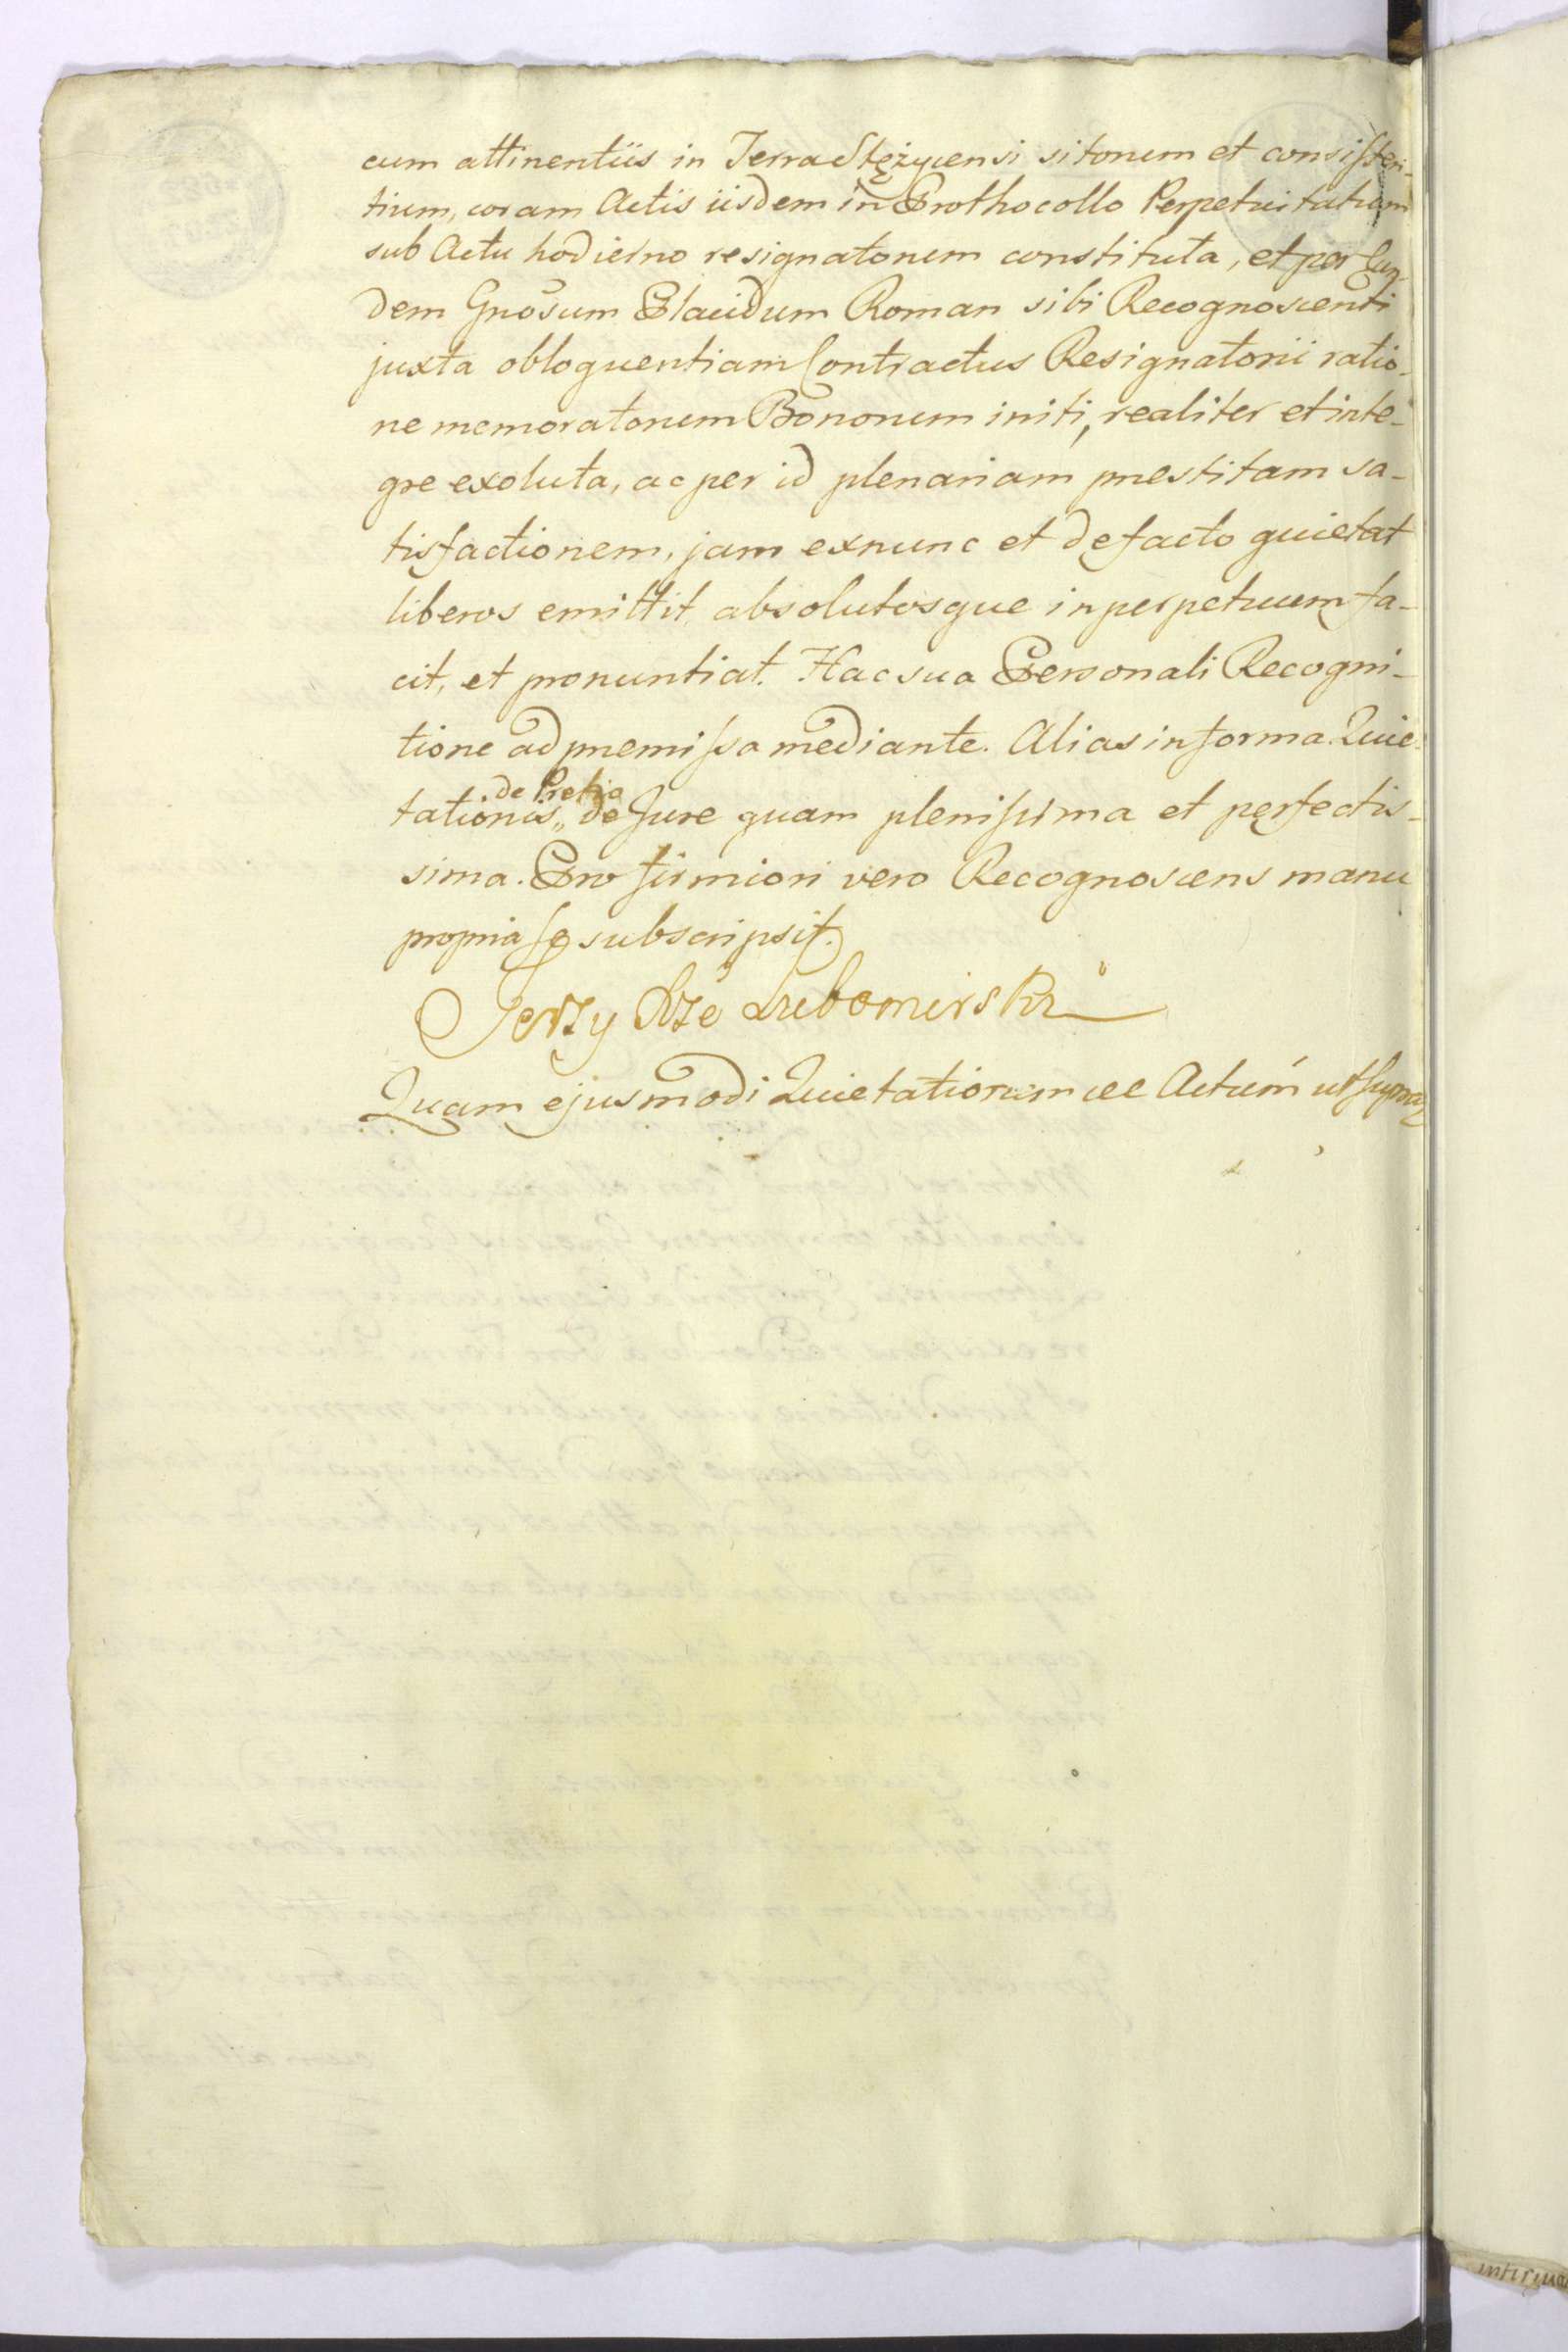 cum attinentiis in Terra Stężycensi sitorum et consisten-
tium, coram Actis iisdem in Prothocollo Perpetuitatum
sub Actu hodierno resignatorum constituta, et per Eun-
dem Gnosum Placidum Roman sibi Recognoscenti
juxta obloquentiam Contractus Resignatorii ratio-
ne memoratorum Bonorum initi, realiter et inte-
gre exoluta, ac per id plenariam prestitam sa-
tisfactionem, jam exnunc et de facto quietat
liberos emittit, absolutosque in perpetuum fa-
cit, et pronuntiat. Hac sua Personali Recogni-
tione ad premissa mediante. Alias in forma Quie-
de Pretio
tationis,, de Jure quam plenissima et perfectis-
sima. Pro firmiori vero Recognoscens manu
propria se subscripsit.
Jerzy Xże Lubomirski
Quam ejusmodi Quietationem Actum ut supra